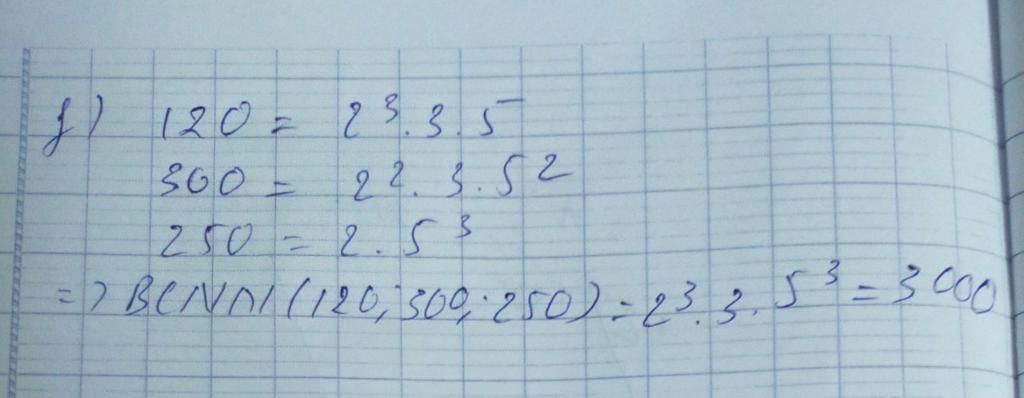 f) 120 = 2³.3.5
300 = 2².3.5²
250 = 2.5³
=> BCNN(120; 300; 250) = 2³.3.5³ = 3000